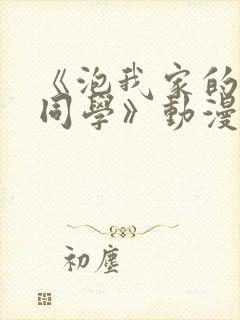 《泡我家的
同學》動漫
初塵